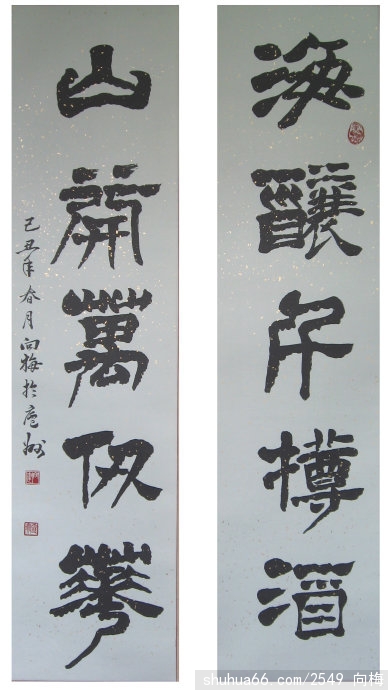 海釀千樽酒
山開萬仞華
己丑年春月向梅於州
shuhua66.com/2549 向梅